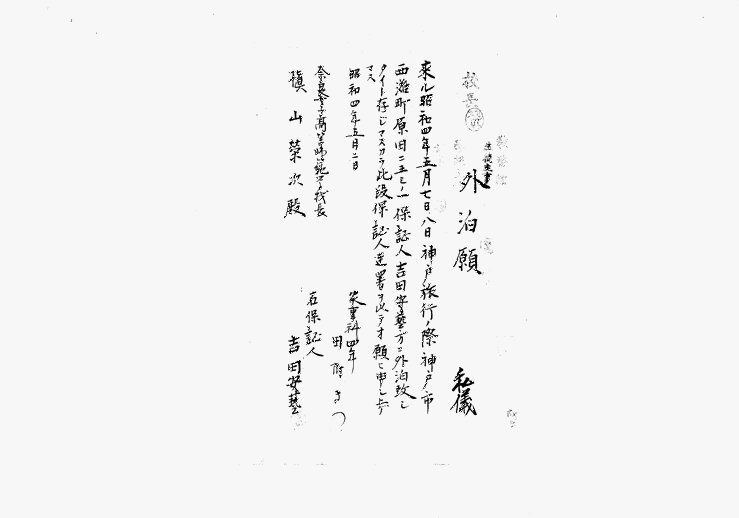 外泊願
私儀
来ル昭和四年五月七日、八日神戸旅行ノ際神戸市
西灘町原田 保証人吉田安藝方ニ外泊致シ
タイト存ジマスカラ此段保証人連署ヲ以テオ願ヒ申シ上ゲ
マス
昭和四年五月二日
家事科四年
田
右保証人
吉田安藝
奈良女子高等師範学校長
槇山榮次殿
校長